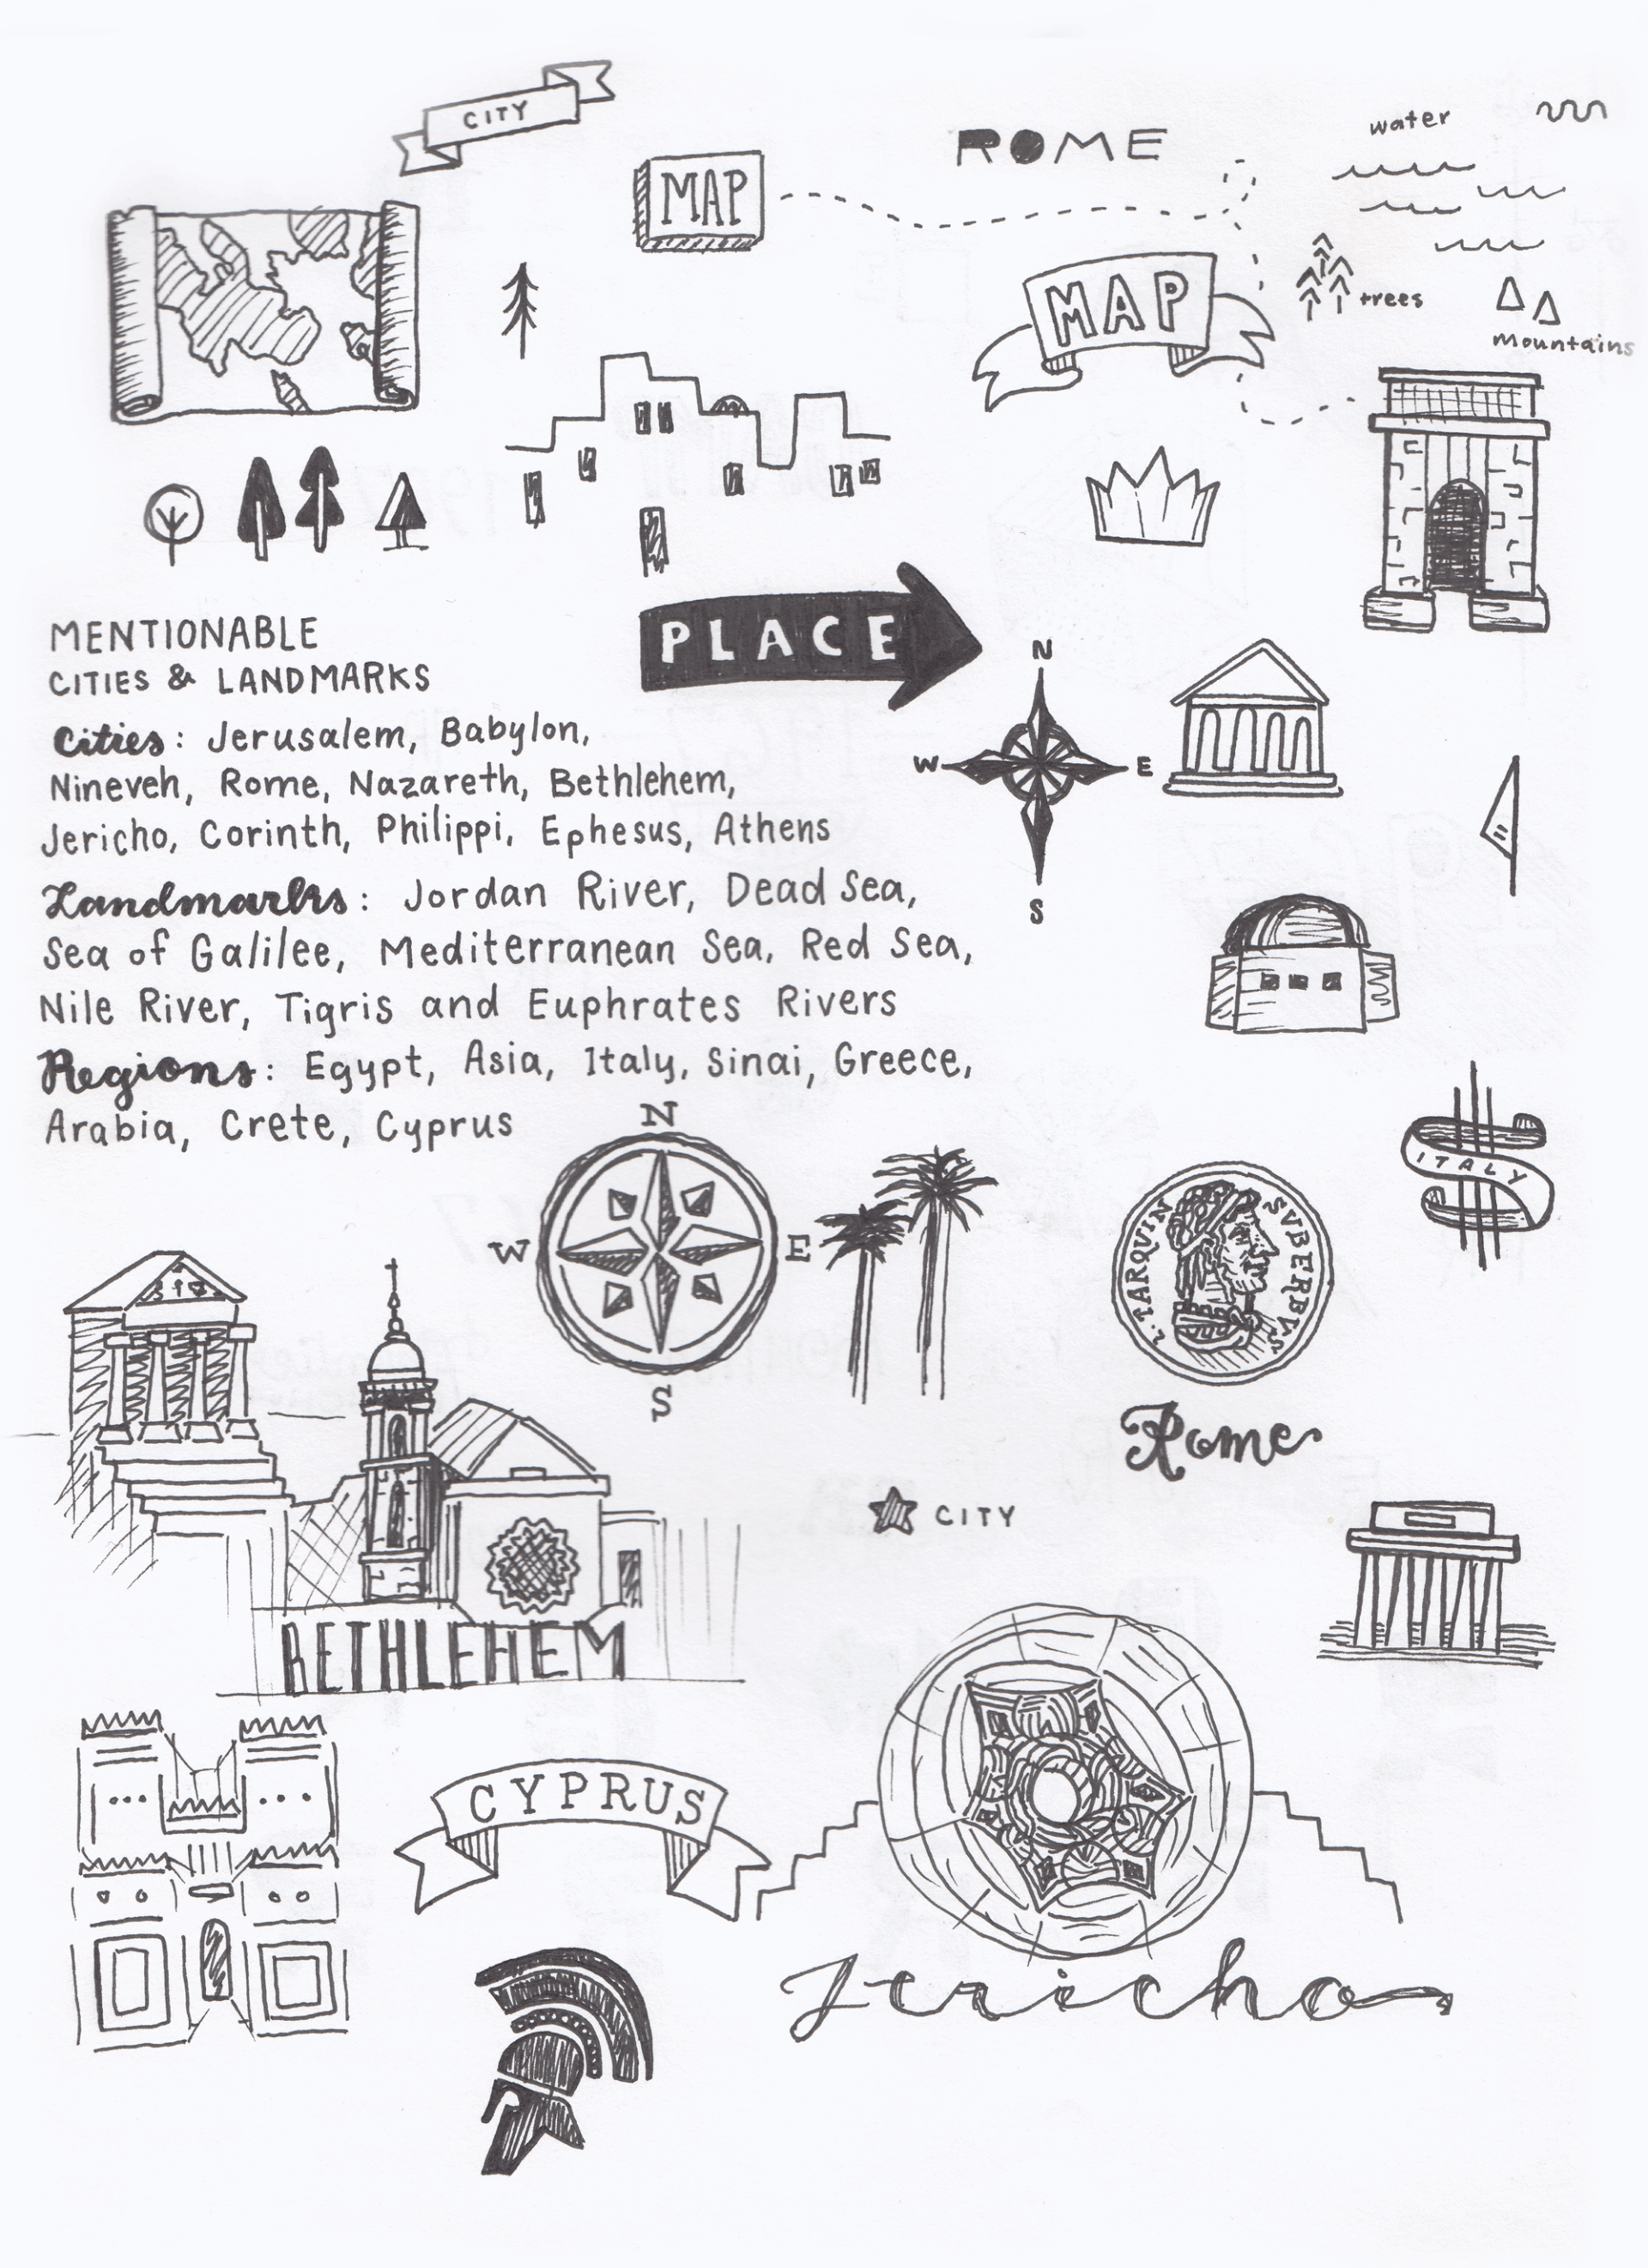 CITY
water
ROME
MAP
MAP
trees
mountains
MENTIONABLE
CITIES & LANDMARKS
PLACE
Cities: Jerusalem, Babylon,
Nineveh, Rome, Nazareth, Bethlehem,
Jericho, Corinth, Philippi, Ephesus, Athens
Landmarks: Jordan River, Dead Sea,
Sea of Galilee, Mediterranean Sea, Red Sea,
Nile River, Tigris and Euphrates Rivers
Regions: Egypt, Asia, Italy, Sinai, Greece,
Arabia, Crete, Cyprus
N
W E
S
ITALY
N
W E
S
L·TARQVIN SVBERBVS
Rome
CITY
BETHLEHEM
CYPRUS
Jericho